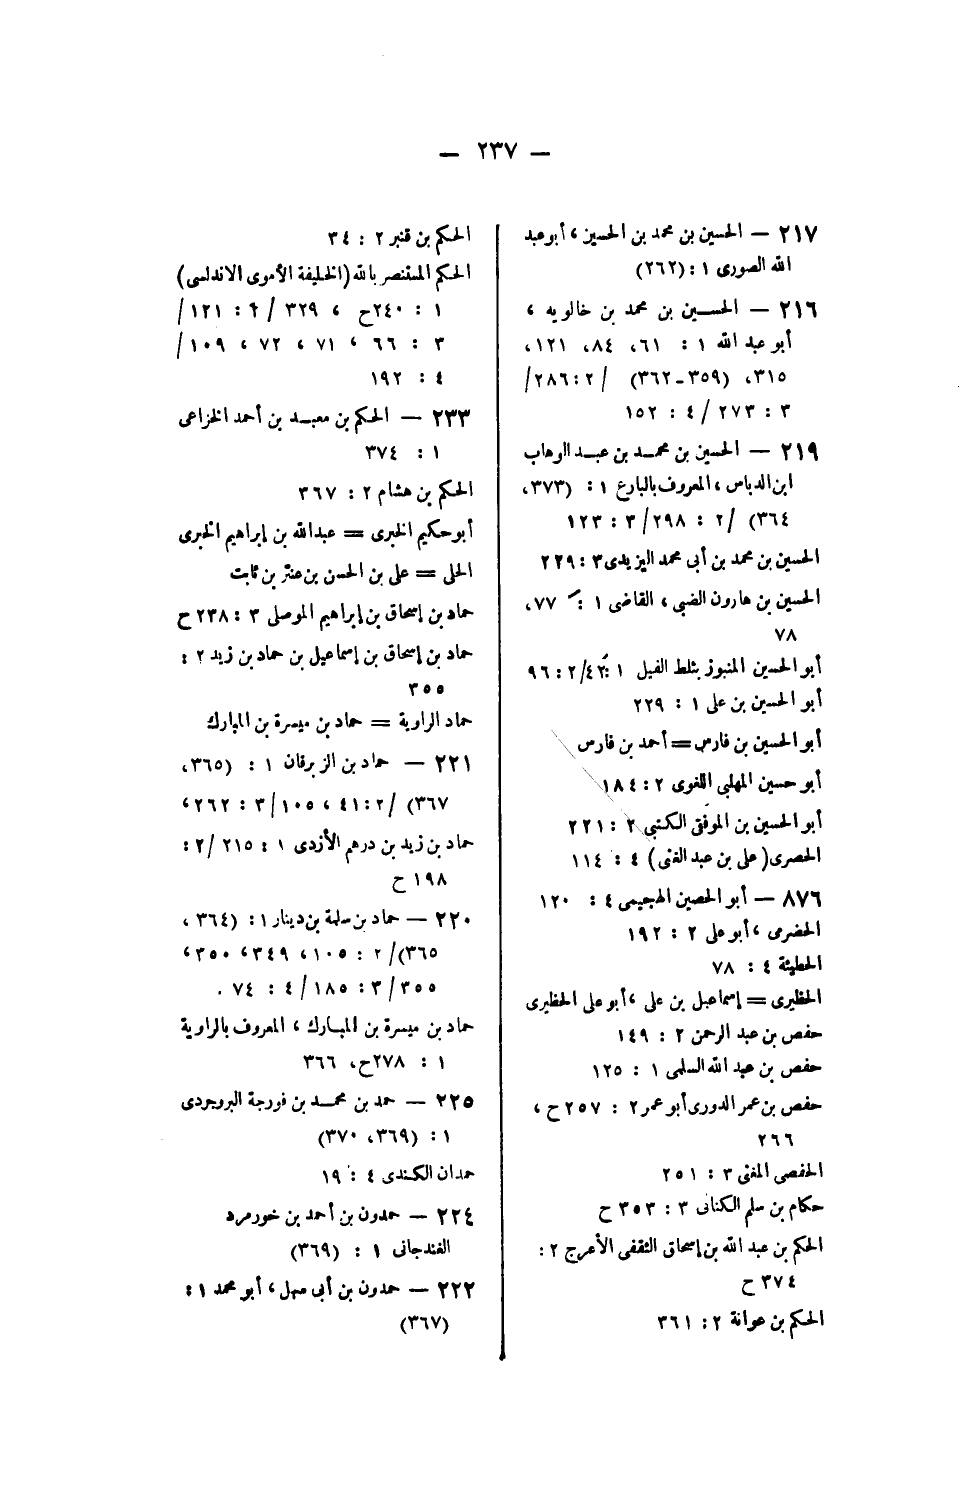 — ٢٣٧ —
٢١٧ — الحسين بن محمد بن الحسين ، أبو عبد
الله الصورى ١ : (٢٦٢)
٢١٦ — الحسين بن محمد بن خالويه ،
أبو عبد الله ١ : ٦١، ٨٤، ١٢١،
٣١٥، (٣٥٩-٣٦٢) / ٢ : ٢٨٦/
٣ : ٢٧٣ / ٤ : ١٥٢
٢١٩ — الحسين بن محمد بن عبد الوهاب
ابن الدباس ، المعروف بالبارع ١ : (٣٧٣،
٣٦٤) / ٢ : ٢٩٨ / ٣ : ١٢٣
الحسين بن محمد بن أبى محمد اليزيدى ٣ : ٢٢٩
الحسين بن هارون الضبى ، القاضى ١ : ٧٧،
٧٨
أبو الحسين المنبوز بثلط الفيل ١ : ٤٣/ ٢ : ٩٦
أبو الحسين بن على ١ : ٢٢٩
أبو الحسين بن فارس = أحمد بن فارس
أبو حسين المهلبى اللغوى ٢ : ١٨٤
أبو الحسين بن الموفق الكتبى ٢ : ٢٢١
الحصرى ( على بن عبد الغنى ) ٤ : ١١٤
٨٧٦ — أبو الحصين الهجيمى ٤ : ١٢٠
الحضرمى ، أبو على ٢ : ١٩٢
الحطيئة ٤ : ٧٨
الحظيرى = إسماعيل بن على ، أبو على الحظيرى
حفص بن عبد الرحمن ٢ : ١٤٩
حفص بن عبد الله السلمى ١ : ١٢٥
حفص بن عمر الدورى أبو عمر ٢ : ٢٥٧ ح ،
٢٦٦
الحفصى المغنى ٣ : ٢٥١
حكام بن سلم الكنانى ٣ : ٣٥٣ ح
الحكم بن عبد الله بن إسحاق الثقفى الأعرج ٢ :
٣٧٤ ح
الحكم بن عوانة ٢ : ٣٦١
الحكم بن قنبر ٢ : ٣٤
الحكم المستنصر بالله (الخليفة الأموى الاندلسى)
١ : ٢٤٠ ح ، ٣٢٩ / ٢ : ١٢١ /
٣ : ٦٦ ، ٧١ ، ٧٢ ، ١٠٩ /
٤ : ١٩٢
٢٣٣ — الحكم بن معبد بن أحمد الخزاعى
١ : ٣٧٤
الحكم بن هشام ٢ : ٣٦٧
أبو حكيم الخبرى = عبد الله بن إبراهيم الخبرى
الحلى = على بن الحسن بن عنتر بن ثابت
حماد بن إسحاق بن إبراهيم الموصلى ٣ : ٢٣٨ ح
حماد بن إسحاق بن إسماعيل بن حماد بن زيد ٢ :
٣٥٥
حماد الراوية = حماد بن ميسرة بن المبارك
٢٢١ — حماد بن الزبرقان ١ : (٣٦٥،
٣٦٧) / ٢ : ٤١ ، ١٠٥ / ٣ : ٢٦٢ ،
حماد بن زيد بن درهم الأزدى ١ : ٢١٥ / ٢ :
١٩٨ ح
٢٢٠ — حماد بن سلمة بن دينار ١ : (٣٦٤ ،
٣٦٥) / ٢ : ١٠٥ ، ٣٤٩ ، ٣٥٠ ،
٣٥٥ / ٣ : ١٨٥ / ٤ : ٧٤ .
حماد بن ميسرة بن المبارك ، المعروف بالراوية
١ : ٢٧٨ ح ، ٣٦٦
٢٢٥ — حمد بن محمد بن فورجة البروجردى
١ : (٣٦٩، ٣٧٠)
حمدان الكندى ٤ : ١٩
٢٢٤ — حمدون بن أحمد بن خورمرد
الفندجانى ١ : (٣٦٩)
٢٢٢ — حمدون بن أبى سهل ، أبو محمد ١ :
(٣٦٧)